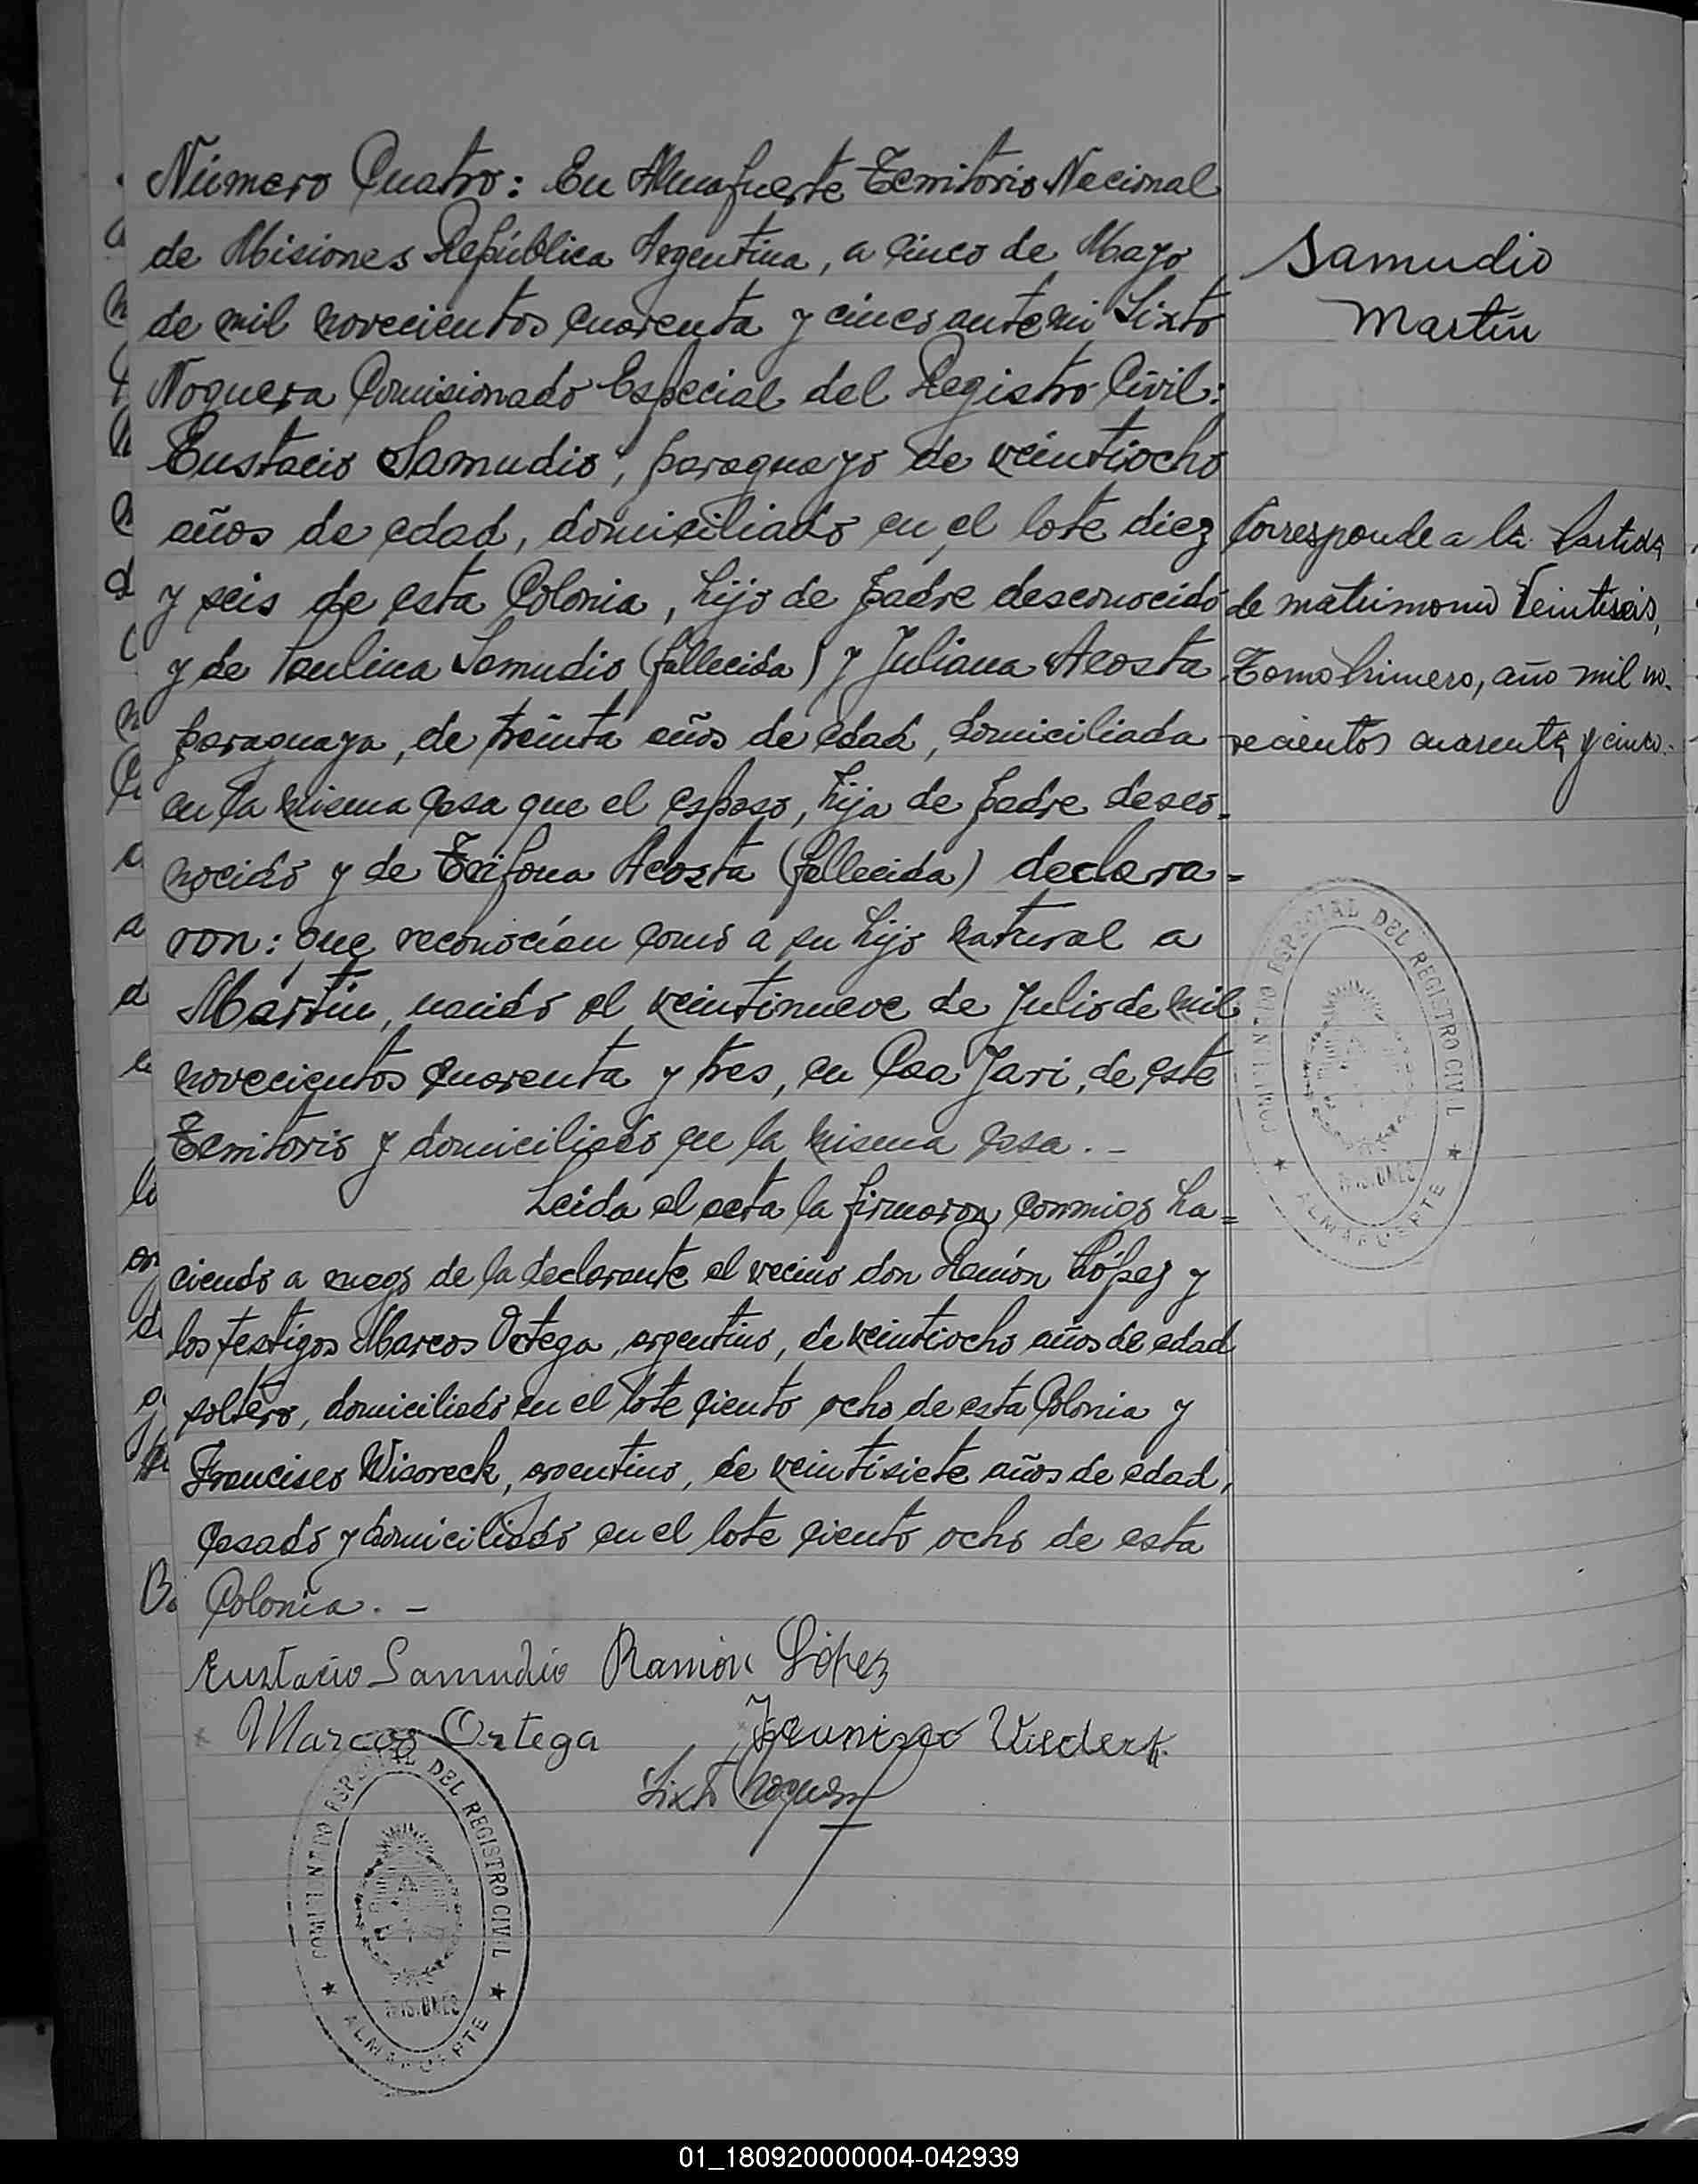 Número Cuatro: En Almafuerte Territorio Nacional
de Misiones República Argentina, a cinco de Mayo
de mil novecientos cuarenta y cinco ante mi Sixto
Noguera Comisionado Especial del Registro Civil:
Eustacio Samudio, paraguayo de veintiocho
años de edad, domiciliado en el lote diez
y seis de esta Colonia, hijo de padre desconocido
y de Paulina Samudio (fallecida) y Juliana Acosta
paraguaya, de treinta años de edad, domiciliada
en la misma casa que el esposo, hija de padre desco-
nocido y de Acosta (fallecida) declara=
ron: que reconocían como a su hijo natural a
Martín, nacido el veintinueve de Julio de mil
novecientos cuarenta y tres, en Caa Yari, de este
Territorio y domiciliado en la misma casa. -
Leida el acta la firmaron conmigo ha=
ciendo a ruego de la declarante el vecino don Ramón López y
los testigos Marcos Ortega, argentino, de veintiocho años de edad
soltero, domiciliado en el lote ciento ocho de esta Colonia y
Francisco Wisoreck, argentino, de veintisiete años de edad,
casado y domiciliado en el lote ciento ocho de esta
Colonia. -
Eustacio Samudio Ramón López
Marcos Ortega
Sixto Noguera
ESPECIAL DEL REGISTRO CIVIL
MISIONES
ALMAFUERTE
Samudio
Martín
Corresponde a la Partida
de matrimonio Veintiseis,
Tomo Primero, año mil no-
vecientos cuarenta y cinco.-
ESPECIAL DEL REGISTRO CIVIL
MISIONES
ALMAFUERTE
01_180920000004-042939